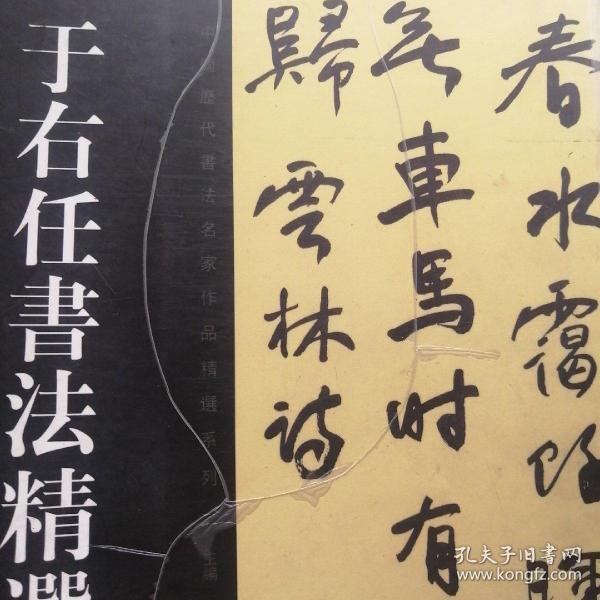 于右任書法精選
中國歷代書法名家作品精選系列
主編
春水靄
無車馬时有
歸雲林詩
孔夫子旧书网
www.kongfz.com